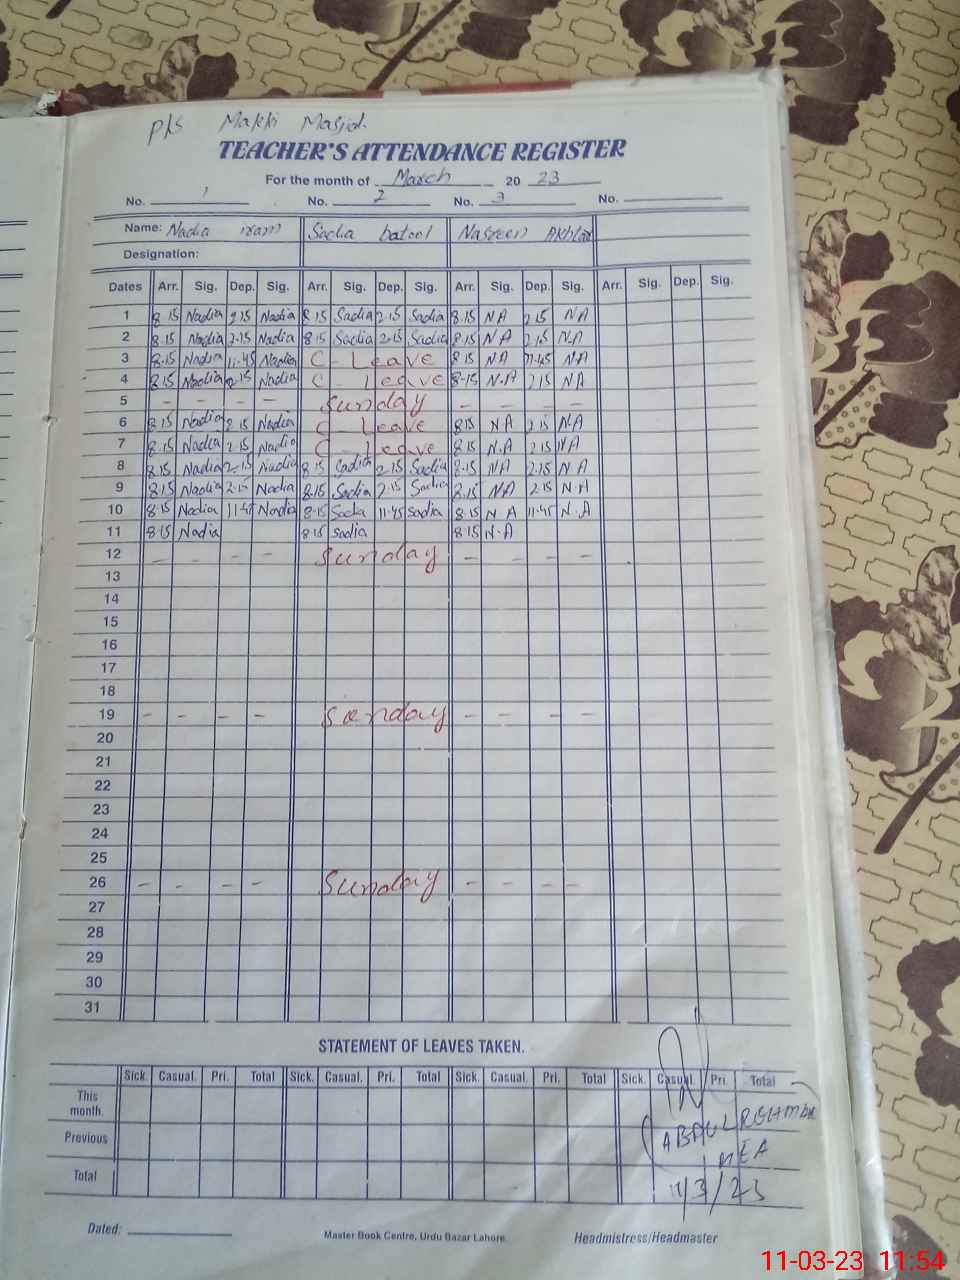 P/S Makki Masjid
TEACHER'S ATTENDANCE REGISTER
For the month of March 20 23
No. 1 No. 2 No. 3 No.
Name: Nadia iram Sadia batool Nasreen Akhtar
Designation:
Dates Arr. Sig. Dep. Sig. Arr. Sig. Dep. Sig. Arr. Sig. Dep. Sig. Arr. Sig. Dep. Sig.
1 8.15 Nadia 2.15 Nadia 8.15 Sadia 2.15 Sadia 8.15 NA 2.15 NA
2 8.15 Nadia 2.15 Nadia 8.15 Sadia 2.15 Sadia 8.15 NA 2.15 NA
3 8.15 Nadia 11.45 Nadia C - Leave 8.15 NA 11.45 NA
4 8.15 Nadia 2.15 Nadia C - leave 8.15 N.A 2.15 NA
5 - - - - Sunday - - - -
6 8.15 Nadia 2.15 Nadia C - Leave 8.15 NA 2.15 N.A
7 8.15 Nadia 2.15 Nadia C - Leave 8.15 N.A 2.15 NA
8 8.15 Nadia 2.15 Nadia 8.15 Sadia 2.15 Sadia 8.15 NA 2.15 NA
9 8.15 Nadia 2.15 Nadia 8.15 Sadia 2.15 Sadia 8.15 NA 2.15 N.A
10 8.15 Nadia 11.45 Nadia 8.15 Sadia 11.45 Sadia 8.15 N A 11.45 N.A
11 8.15 Nadia 8.15 Sadia 8.15 N.A
12 - - - - Sunday - - - -
13
14
15
16
17
18
19 - - - - Sunday - - - -
20
21
22
23
24
25
26 - - - - Sunday - - - -
27
28
29
30
31
STATEMENT OF LEAVES TAKEN.
Sick. Casual. Pri. Total Sick. Casual. Pri. Total Sick. Casual. Pri. Total Sick. Casual. Pri. Total
This month.
Previous
Total
ABDUL REHMAN
MEA
11/3/23
Dated: Master Book Centre, Urdu Bazar Lahore. Headmistress/Headmaster
11-03-23 11:54